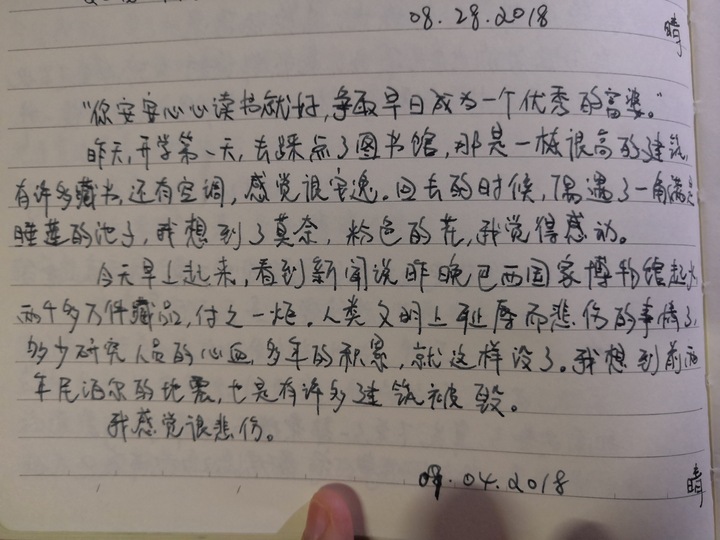 08.28.2018 晴
“你安安心心读书就好,争取早日成为一个优秀的富婆。”
昨天,开学第一天,去踩点了图书馆,那是一栋很高的建筑,
有许多藏书,还有空调,感觉很安逸。回去的时候,偶遇了一角满是
睡莲的池子,我想到了莫奈,粉色的花,我觉得感动。
今天早上起来,看到新闻说昨晚巴西国家博物馆起火
两千多万件藏品,付之一炬。人类文明上耻辱而悲伤的事情了,
多少研究人员的心血,多年的积累,就这样没了。我想到前两
年尼泊尔的地震,也是有许多建筑被毁。
我感觉很悲伤。
09.04.2018 晴